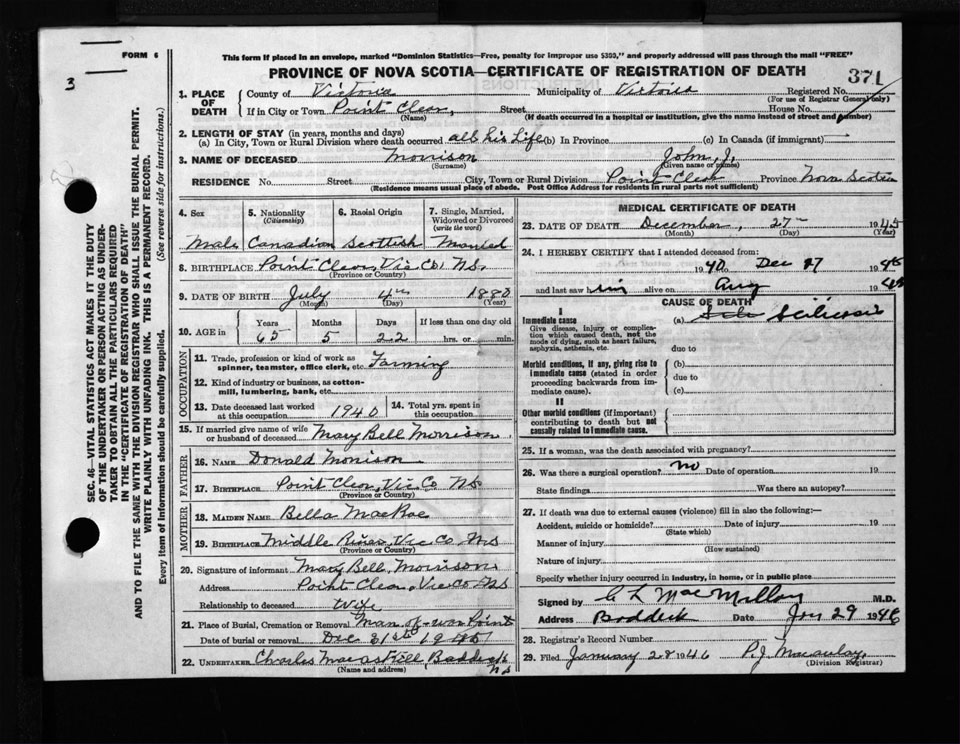 FORM 6
3
This form if placed in an envelope, marked "Dominion Statistics—Free, penalty for improper use $300," and properly addressed will pass through the mail "FREE"
PROVINCE OF NOVA SCOTIA—CERTIFICATE OF REGISTRATION OF DEATH
371
1. PLACE OF DEATH
County of Victoria Municipality of Victoria Registered No.
(For use of Registrar General only)
If in City or Town Point Clear, Street House No.
(Name) (If death occurred in a hospital or institution, give the name instead of street and number)
2. LENGTH OF STAY (in years, months and days)
(a) In City, Town or Rural Division where death occurred all his life (b) In Province (c) In Canada (if immigrant)
3. NAME OF DECEASED Morrison John J.
(Surname) (Given name or names)
RESIDENCE No. Street City, Town or Rural Division Point Clear Province Nova Scotia
(Residence means usual place of abode. Post Office Address for residents in rural parts not sufficient)
4. Sex 5. Nationality (Citizenship) 6. Racial Origin 7. Single, Married, Widowed or Divorced (write the word)
Male Canadian Scottish Married
8. BIRTHPLACE Point Clear, Vic Co, N.S.
(Province or Country)
9. DATE OF BIRTH July 4th 1880
(Month) (Day) (Year)
10. AGE in Years Months Days If less than one day old
65 5 22 hrs. or min.
OCCUPATION
11. Trade, profession or kind of work as spinner, teamster, office clerk, etc. Farming
12. Kind of industry or business, as cotton-mill, lumbering, bank, etc.
13. Date deceased last worked at this occupation 1940 14. Total yrs. spent in this occupation
15. If married give name of wife or husband of deceased Mary Bell Morrison
FATHER
16. NAME Donald Morrison
17. BIRTHPLACE Point Clear, Vic Co NS
(Province or Country)
MOTHER
18. MAIDEN NAME Bella MacRae
19. BIRTHPLACE Middle River, Vic. Co. NS
(Province or Country)
20. Signature of informant Mary Bell Morrison
Address Point Clear, Vic Co NS
Relationship to deceased Wife
21. Place of Burial, Cremation or Removal Man of war Point
Date of burial or removal Dec 31st 1945
22. UNDERTAKER Charles Baddeck NS
(Name and address)
MEDICAL CERTIFICATE OF DEATH
23. DATE OF DEATH December, 27th 1945
(Month) (Day) (Year)
24. I HEREBY CERTIFY that I attended deceased from
1940 Dec 27 1945
and last saw him alive on Aug 19
CAUSE OF DEATH
I
Immediate cause (a)
Give disease, injury or complication which caused death, not the mode of dying, such as heart failure, asphyxia, asthenia, etc.
due to
Morbid conditions, if any, giving rise to immediate cause (stated in order proceeding backwards from immediate cause).
(b)
due to
(c)
II
Other morbid conditions (if important) contributing to death but not causally related to immediate cause.
25. If a woman, was the death associated with pregnancy?
26. Was there a surgical operation? no Date of operation 19
State findings Was there an autopsy?
27. If death was due to external causes (violence) fill in also the following:—
Accident, suicide or homicide? Date of injury 19
(State which)
Manner of injury
(How sustained)
Nature of injury
Specify whether injury occurred in industry, in home, or in public place
Signed by C L MacMillan M.D.
Address Baddeck Date Jan 29 1946
28. Registrar's Record Number
29. Filed January 28 1946 P.J. Macaulay
(Division Registrar)
SEC. 46—VITAL STATISTICS ACT MAKES IT THE DUTY
OF THE UNDERTAKER OR PERSON ACTING AS UNDER-
TAKER TO OBTAIN ALL THE PARTICULARS REQUIRED
IN THE "CERTIFICATE OF REGISTRATION OF DEATH"
AND TO FILE THE SAME WITH THE DIVISION REGISTRAR WHO SHALL ISSUE THE BURIAL PERMIT.
WRITE PLAINLY WITH UNFADING INK. THIS IS A PERMANENT RECORD.
Every item of information should be carefully supplied. (See reverse side for instructions.)